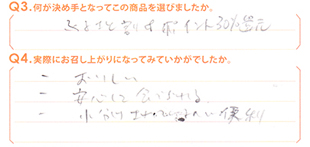 Q3.何が決め手となってこの商品を選びましたか。
ふるさと割 ポイント30%還元
Q4.実際にお召し上がりになってみていかがでしたか。
- おいしい
- 安心して食べられる
- 小分け 便利